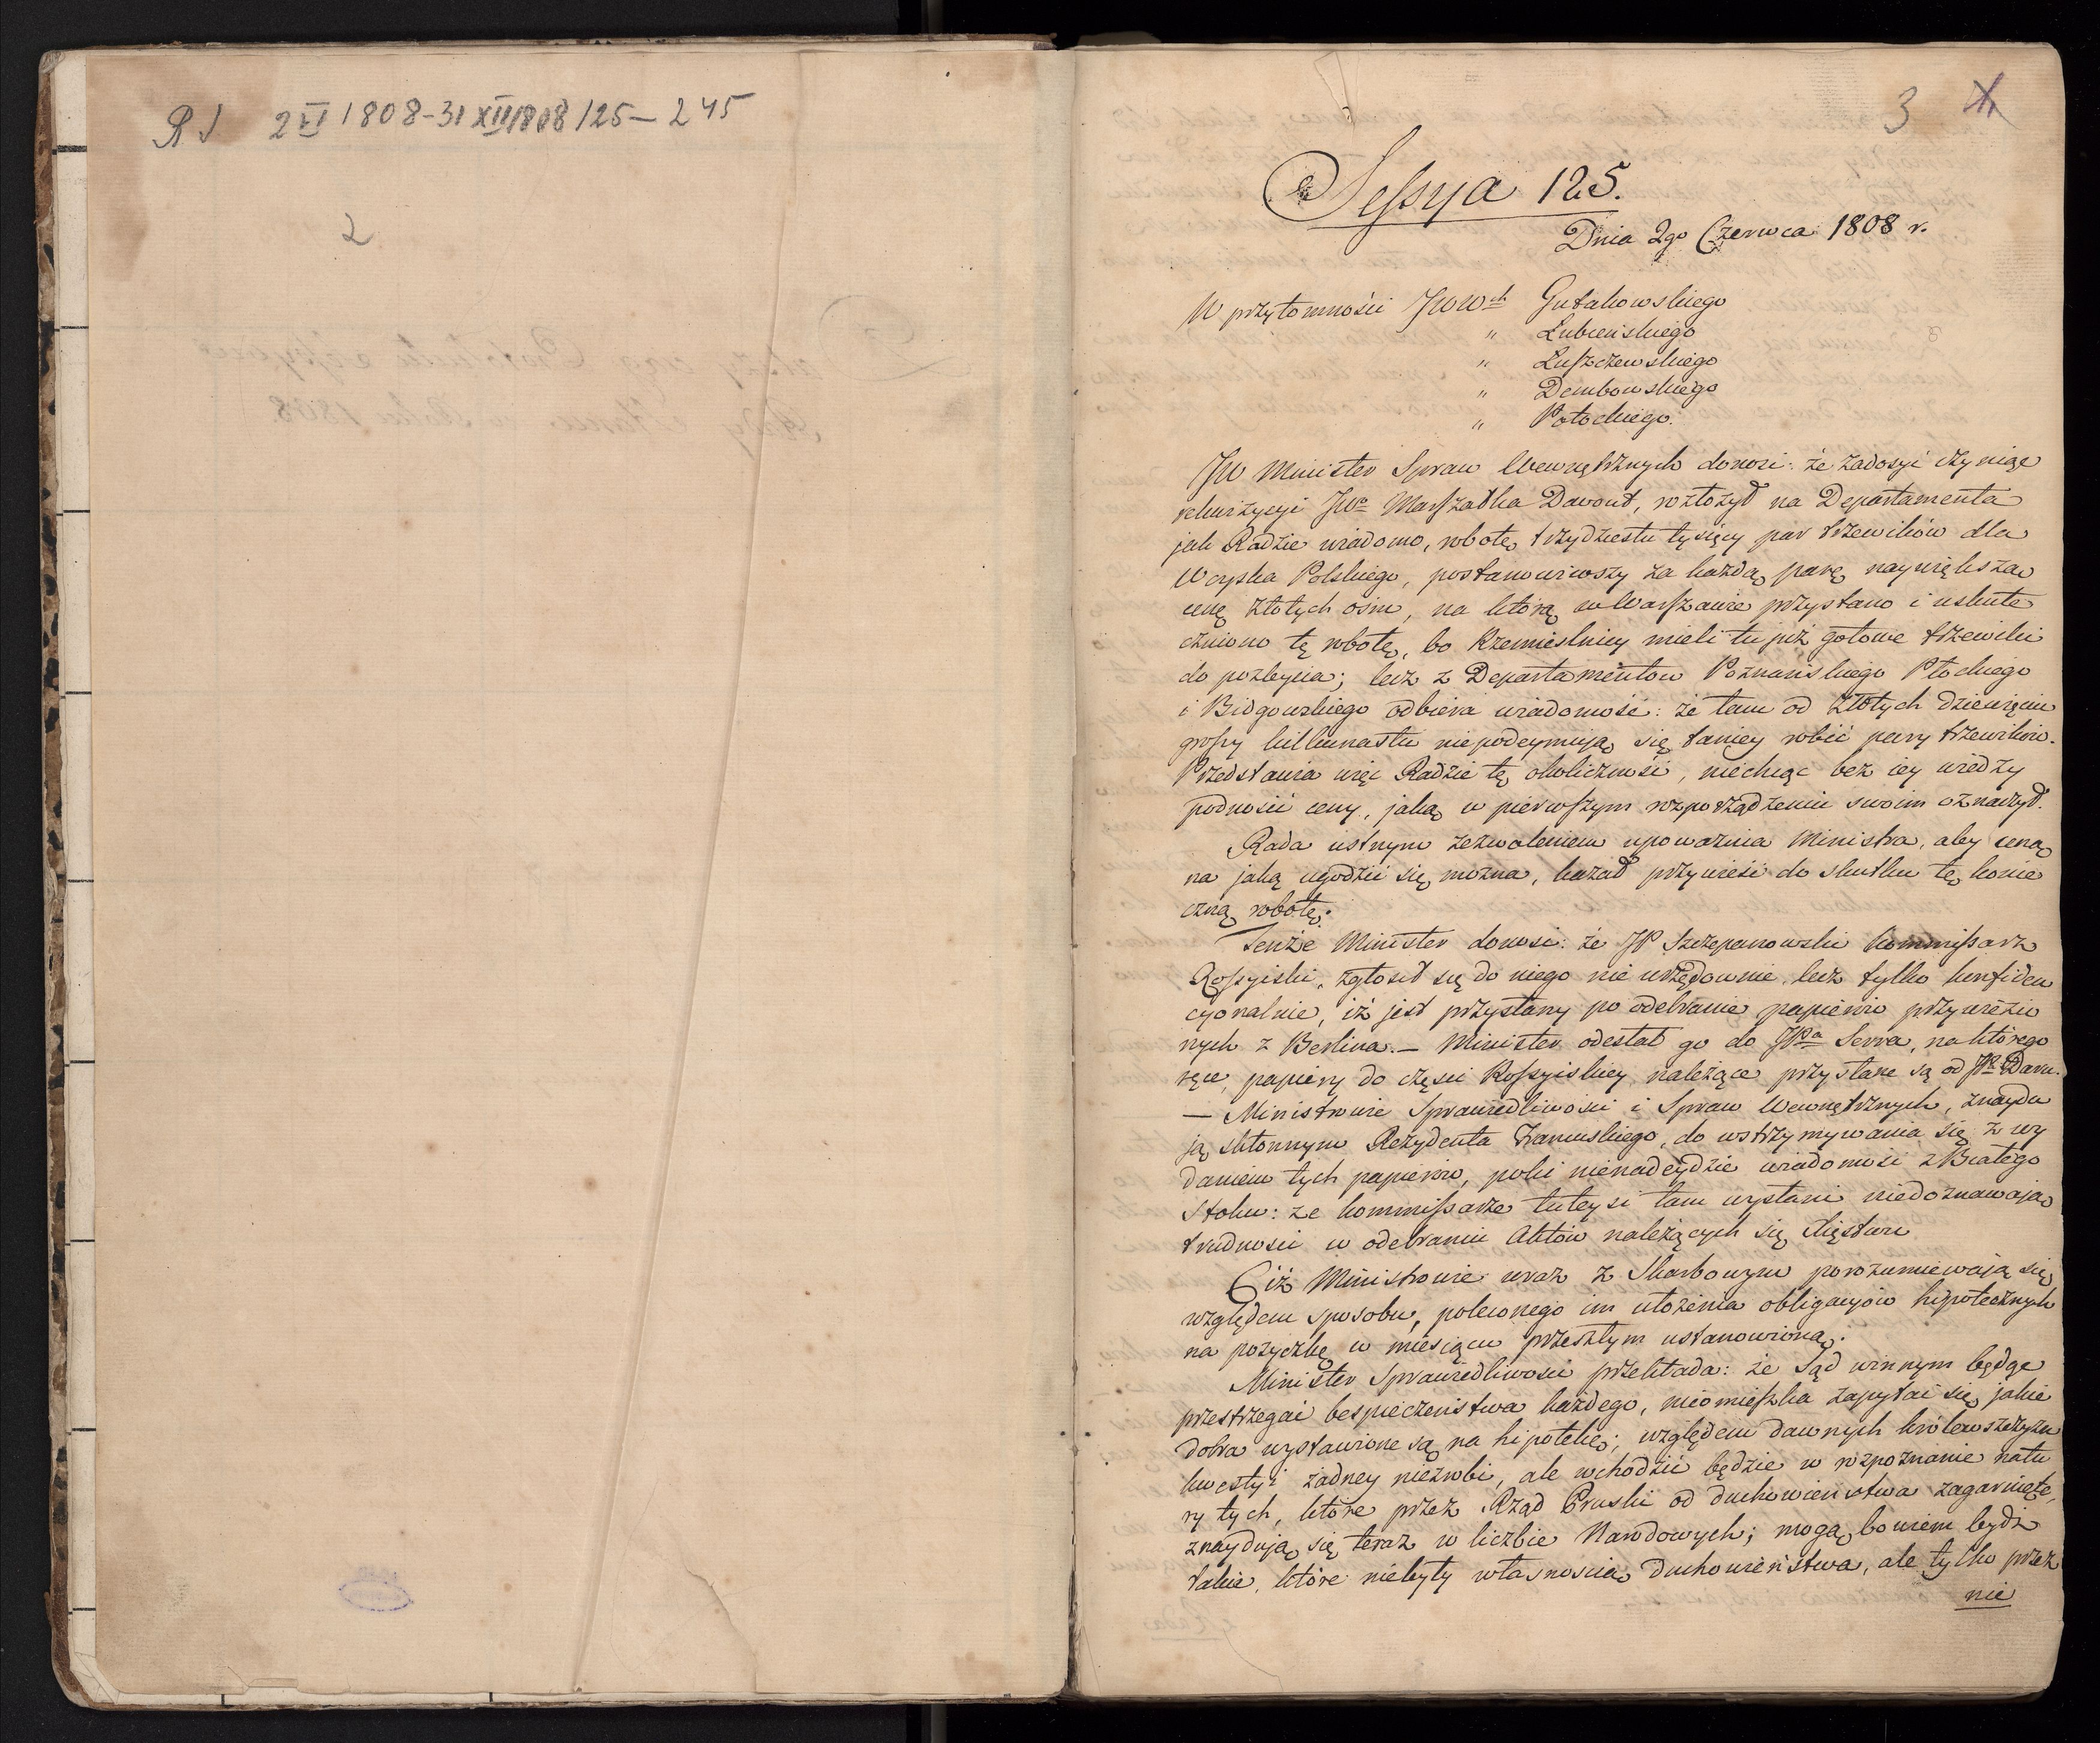 RS 2 VI 1808-31 XII 1808 125-245
2
3
Sessya 125.
Dnia 2go Czerwca 1808 r.
W przytomności JWWch Gutakowskiego
" Łubieńskiego
" Łuszczewskiego
" Dembowskiego
" Potockiego.
JW Minister Spraw Wewnętrznych donosi: że zadosyć czyniąc
rekwizycyi JWo Marszałka Davout, rozłożył na Departamenta
jak Radzie wiadomo, robotę trzydziestu tysięcy par trzewików dla
Woyska Polskiego, postanowiwszy za każdą parę naywiększą
cenę złotych ośm, na którą w Warszawie przystano i uskute
czniono tę robotę, bo Rzemieslnicy mieli tu już gotowe trzewiki
do pozbycia; lecz z Departamentów Poznańskiego Płockiego
i Bidgowskiego odbiera wiadomość: że tam od złotych dziewięciu
groszy kilkunastu niepodeymują się taniey robić pary trzewików.
Przedstawia więc Radzie tę okoliczność, niechcąc bez iey wiedzy
podnosić ceny, jaką w pierwszym rozporządzeniu swoim oznaczył.
Rada ustnym zezwoleniem upoważnia Ministra, aby ceną
na jaką ugodzić się można, kazał przywieść do skutku tę konie
czną robotę.
Tenże Minister donosi: że JP Szczepanowski Kommissarz
Rossyiski, zgłosił się do niego nie urzędownie, lecz tylko konfiden
cyonalnie, iż jest przysłany po odebranie papierów przywiezio
nych z Berlina. — Minister odesłał go do JPa Serra, na którego
ręce, papiery do części Rossyiskiey należące przysłane są od JPa Daru.
— Ministrowie Sprawiedliwości i Spraw Wewnętrznych, znaydu
ją skłonnym Rezydenta Francuskiego, do wstrzymywania się z wy
daniem tych papierów, poki nienadeydzie wiadomość z Białego
Stoku: że kommissarze tuteysi tam wysłani niedoznawają
trudności w odebraniu Aktów należących się Xięstwu
Ciż Ministrowie wraz z Skarbowym porozumiewają się
względem sposobu, poleconego im ułożenia obligacyów hipotecznych
na pożyczkę w miesiącu przeszłym ustanowioną.
Minister Sprawiedliwości przekłada: że Sąd winnym będąc
przestrzegać bespieczeństwa każdego, nieomieszka zapytać się, jakie
dobra wystawione są na hipotekę; względem dawnych królewszczyzn
kwestyi żadney niezrobi, ale wchodzić będzie w rozpoznanie natu
ry tych, które przez Rząd Pruski od duchowieństwa zagarnięte,
znaydują się teraz w liczbie Narodowych; mogą bowiem bydź
takie, które niebyły własnością Duchowieństwa, ale tylko przez
nie